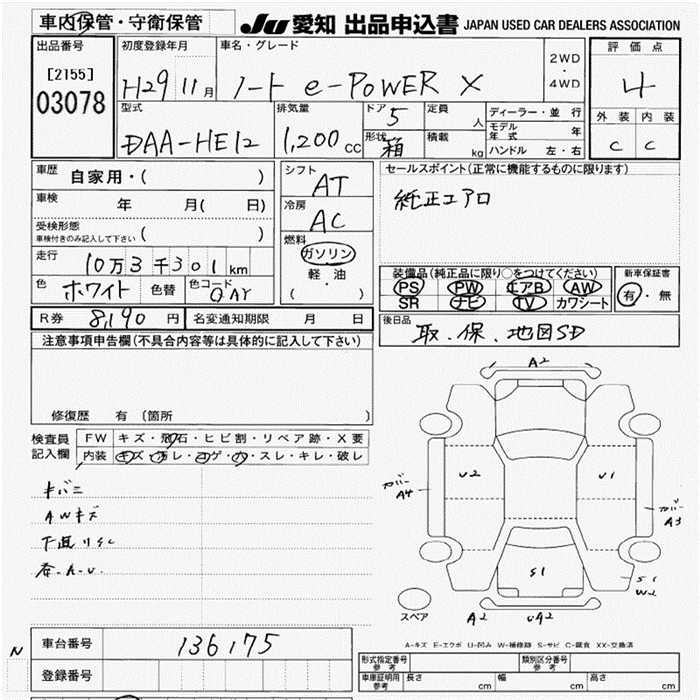 車内保管・守衛保管
JU 愛知 出品申込書 JAPAN USED CAR DEALERS ASSOCIATION
出品番号
[2155]
03078
初度登録年月
H29 11月
車名・グレード
ノート e-POWER X
2WD
・
4WD
評価点
4
外装 内装
C C
型式
DAA-HE12
排気量
1,200 CC
ドア 5
形状 箱
定員 人
積載 kg
ディーラー・並行
モデル年式 年
ハンドル 左・右
車歴 自家用・( )
車検 年 月( 日)
受検形態
車検付きのみ記入して下さい ( )
走行 10万3千301km
色 ホワイト 色替 色コード QAY
シフト
AT
冷房
AC
燃料
ガソリン
軽・油
( ・ )
セールスポイント(正常に機能するものに限ります)
純正エアロ
装備品(純正品に限り○をつけてください)
PS PW エアB AW
SR ナビ TV カワシート
新車保証書
有・無
R券 8,190 円 名変通知期限 月 日
後日品 取.保.地図SD
注意事項申告欄(不具合内容等は具体的に記入して下さい)
修復歴 有 (箇所 )
検査員
記入欄
FW キズ・飛石・ヒビ割・リペア跡・X要
内装 キズ・汚レ・コゲ・穴・スレ・キレ・破レ
キバミ
AWキズ
下廻りSC
A2
U2 U1
カバー A4
カバー A3
S1
S1
W2
スペア
A2 UA2
A-キズ E-エクボ U-凹み W-補修跡 S-サビ C-腐食 XX-交換済
N
車台番号 136175
登録番号
形式指定番号
参考
類別区分番号
参考
車庫証明用
参考
長さ cm 幅 cm 高さ cm